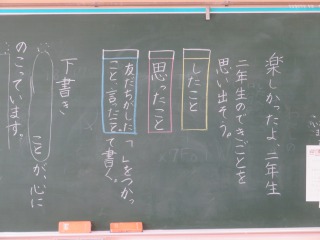 楽しかったよ、二年生
二年生のできごとを
思い出そう。
したこと
思ったこと
友だちがした
こと、言ったこと
「」をつかっ
て書く。
下書き
ことが、心に
のこっています。